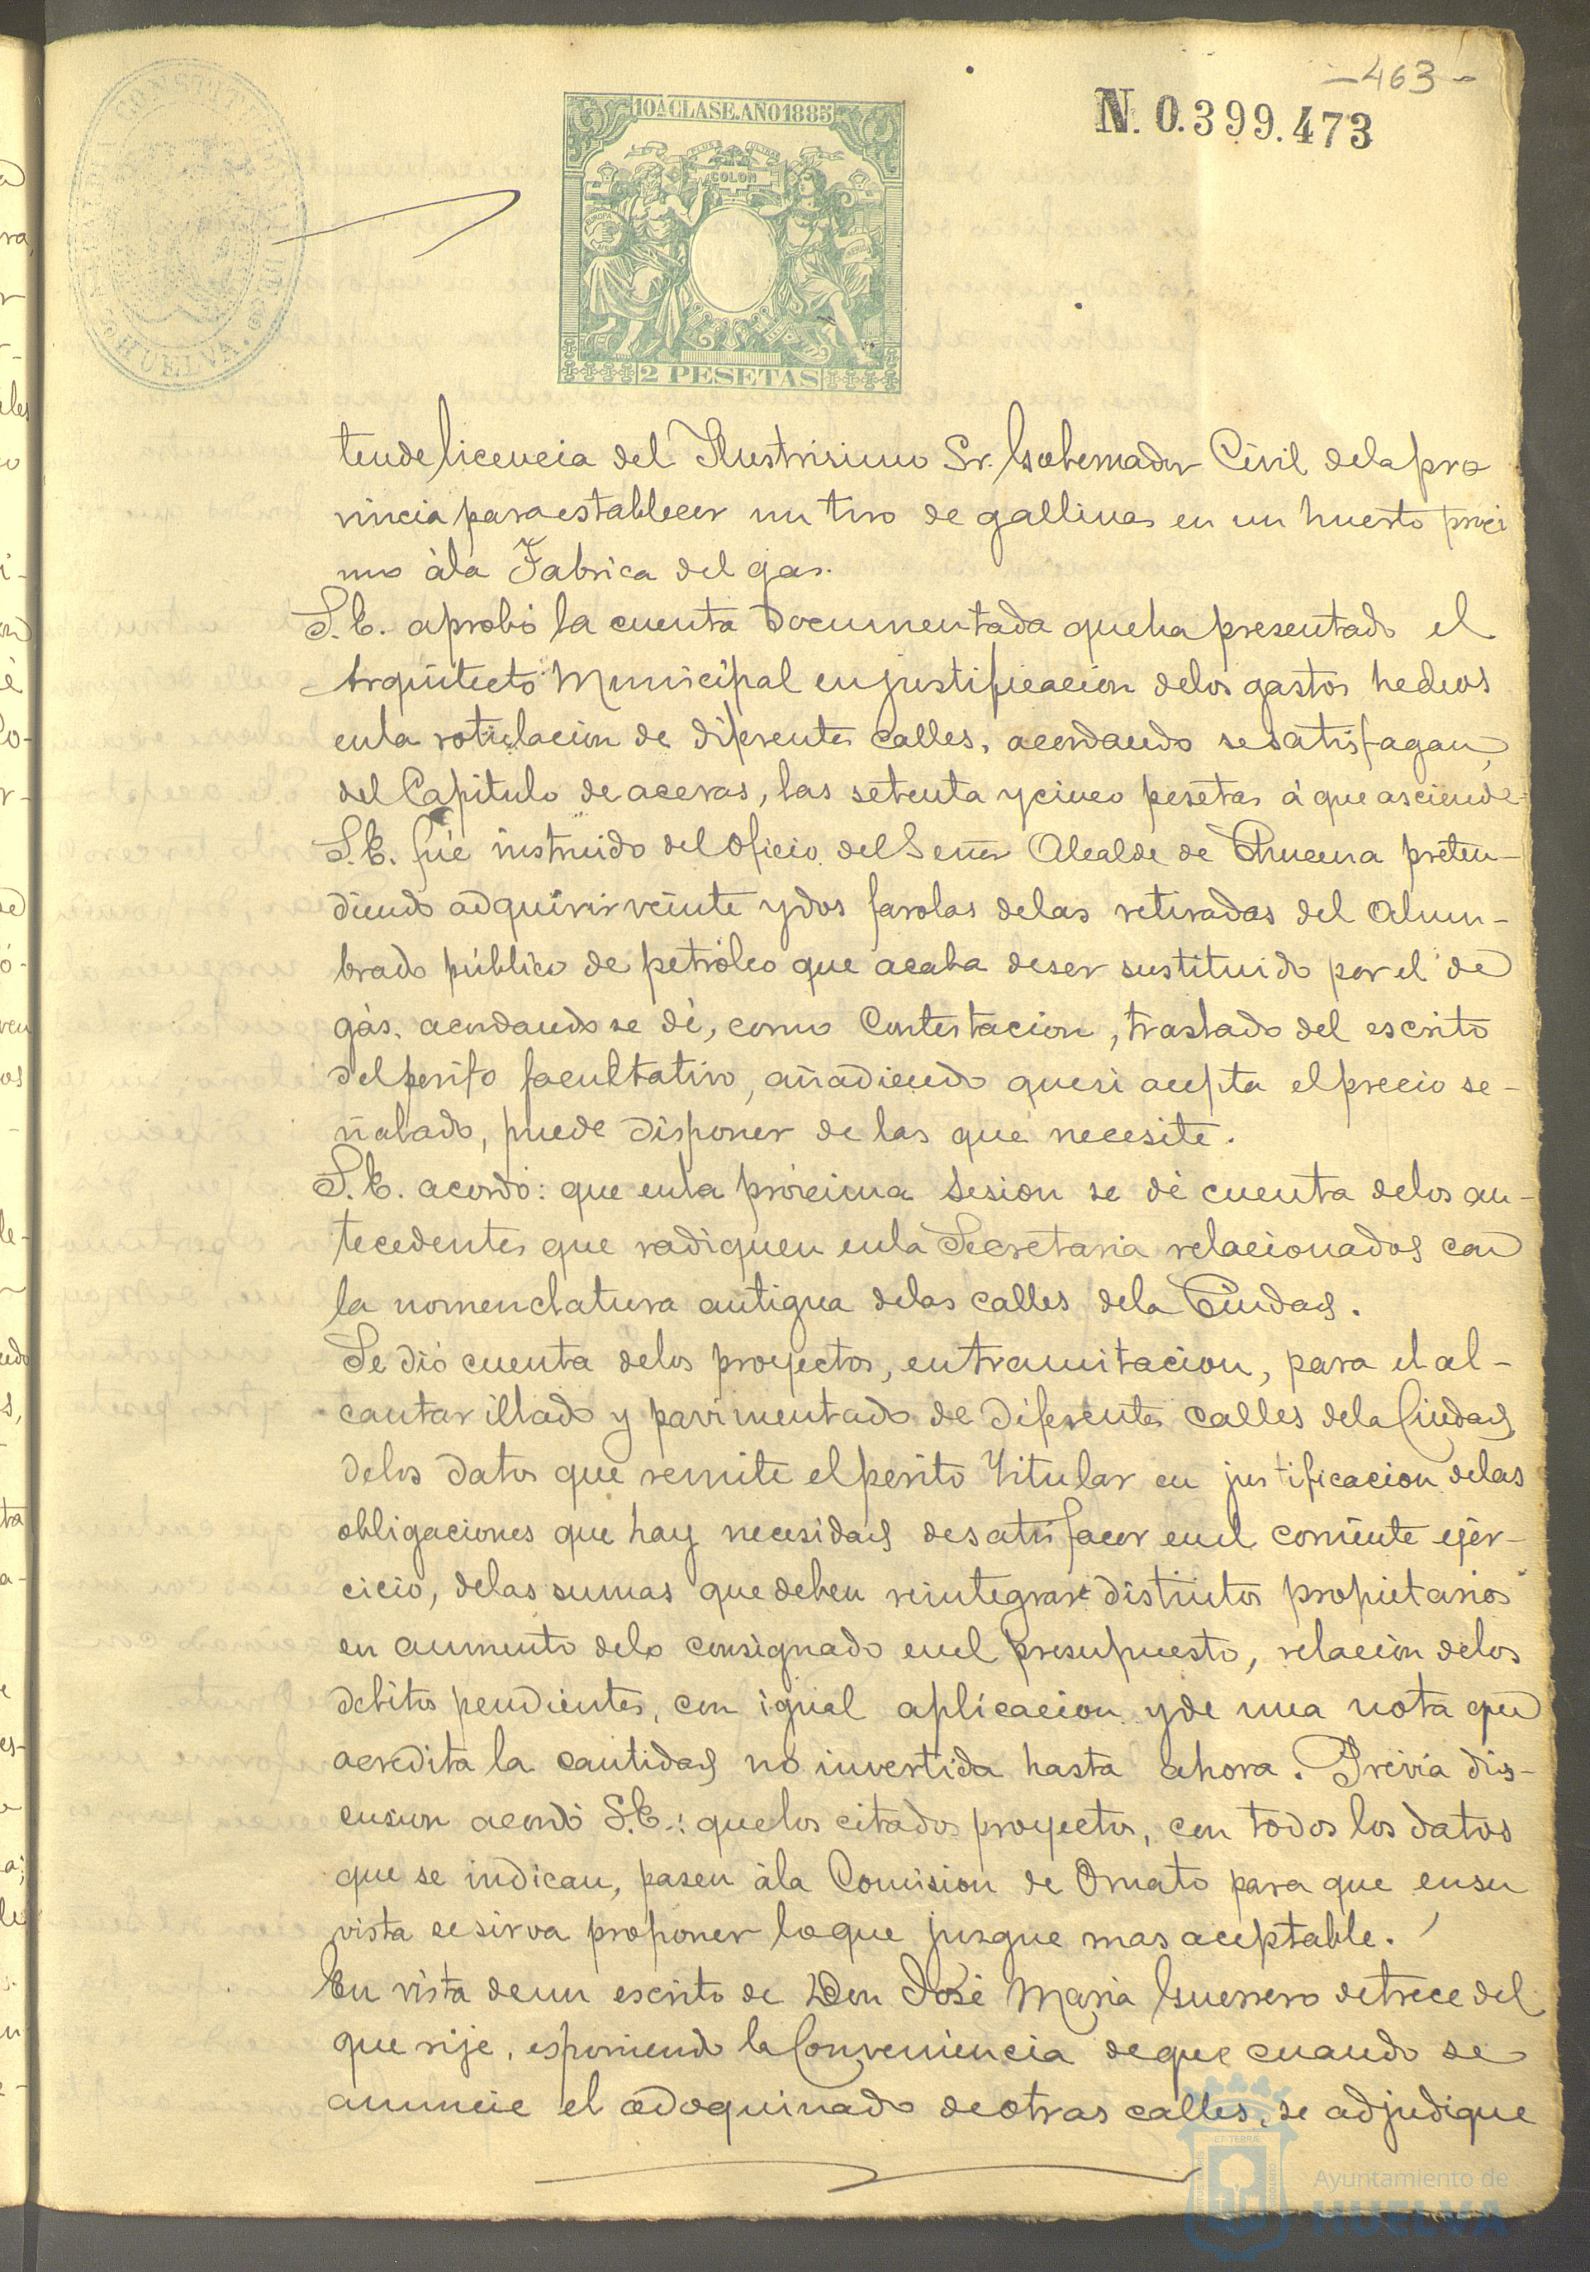 -463-
N. 0.399.473
10ª CLASE. AÑO 1885
PLUS ULTRA
COLON
EUROPA
2 PESETAS
CONSTITUCIONAL DE
HUELVA.
tende licencia del Ilustrisimo Sr. Gobernador Civil dela pro
vincia para establecer un tiro de gallinas en un huerto proci
mo àla Fabrica del gas.
S.E. aprobó la cuenta Documentada que ha presentado el
Arquitecto Municipal en justificacion delos gastos hechos
enla rotulacion de diferentes calles, acordando se satisfagan,
del Capitulo de aceras, las setenta y cinco pesetas á que asciende.
S.E. fué instruido del oficio del Señor Alcalde de Chucena preten-
diendo adquirir veinte y dos farolas delas retiradas del Alum-
brado público de petróleo que acaba de ser sustituido por el de
gás, acordando se dé, como Contestacion, traslado del escrito
del perito facultativo, añadiendo que si acepta el precio se-
ñalado, puede disponer de las que necesite.
S.E. acordó: que enla prócima Sesion se dé cuenta delos an-
tecedentes que radiquen enla Secretaria relacionados con
la nomenclatura antigua delas calles dela Ciudad.
Se dió cuenta delos proyectos, en tramitacion, para el al-
cantarillado y pavimentado de diferentes calles dela Ciudad,
delos datos que remite el perito Titular en justificacion delas
obligaciones que hay necesidad de satisfacer en el corriente ejer-
cicio, delas sumas que deben reintegrar distintos propietarios
en aumento delo consignado en el presupuesto, relacion delos
debitos pendientes, con igual aplicacion y de una nota que
acredita la cantidad no invertida hasta ahora. Previa dis-
cusion acordó S.E.: que los citados proyectos, con todos los datos
que se indican, pasen àla Comision de Ornato para que en su
vista se sirva proponer lo que jusgue mas aceptable.
En vista de un escrito de Don José Maria Guerrero de trece del
que rije, esponiendo la Conveniencia de que cuando se
anuncie el adoquinado de otras calles, se adjudique
Ayuntamiento de
HUELVA